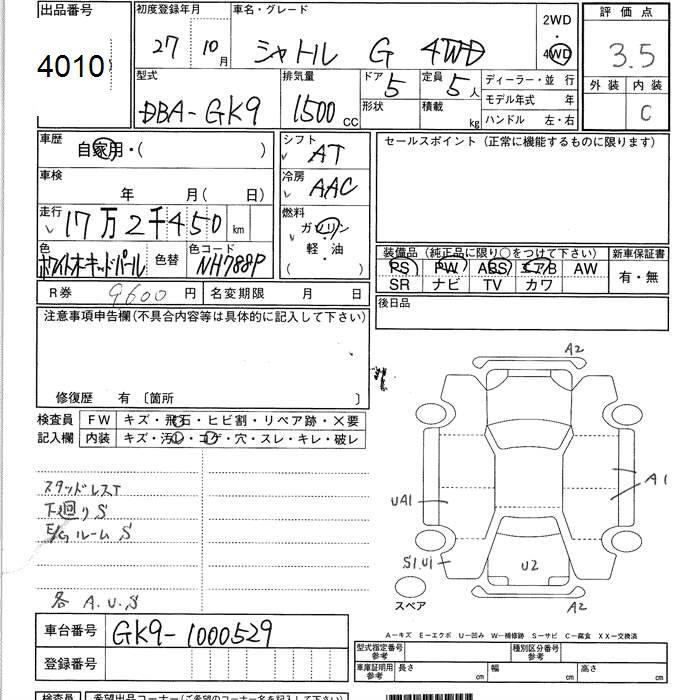 出品番号 初度登録年月 車名・グレード 2WD 評価点
4010 27 10月 シャトル G 4WD 4WD 3.5
型式 排気量 ドア 定員 ディーラー・並行 外装 内装
DBA-GK9 1500cc 5 5人 モデル年式 年 C
形状 積載 kg ハンドル 左・右
車歴 自家用・( ) シフト AT セールスポイント (正常に機能するものに限ります)
車検 年 月( 日) 冷房 AAC
走行 17万2千450km 燃料 ガソリン
軽・油
( )
色 ホワイトオーキッドパール 色替 色コード NH788P 装備品 (純正品に限り○をつけて下さい) 新車保証書
PS PW ABS エアB AW 有・無
SR ナビ TV カワ
R券 9600円 名変期限 月 日 後日品
注意事項申告欄(不具合内容等は具体的に記入して下さい)
修復歴 有 〔箇所 〕
検査員 FW キズ・飛石・ヒビ割・リペア跡・×要
記入欄 内装 キズ・汚れ・コゲ・穴・スレ・キレ・破レ
A2
スタッドレスT
下廻りS
E/GルームS
UA1
A1
S1.U1
U2
各 A.U.S
スペア
A2
車台番号 GK9-1000529
登録番号
A―キズ E―エクボ U―凹み W―補修跡 S―サビ C―腐食 XX―交換済
型式指定番号 参考 種別区分番号 参考
車庫証明用 参考 長さ cm 幅 cm 高さ cm
検査員 希望出品コーナー(ご希望のコーナー名を記入して下さい)